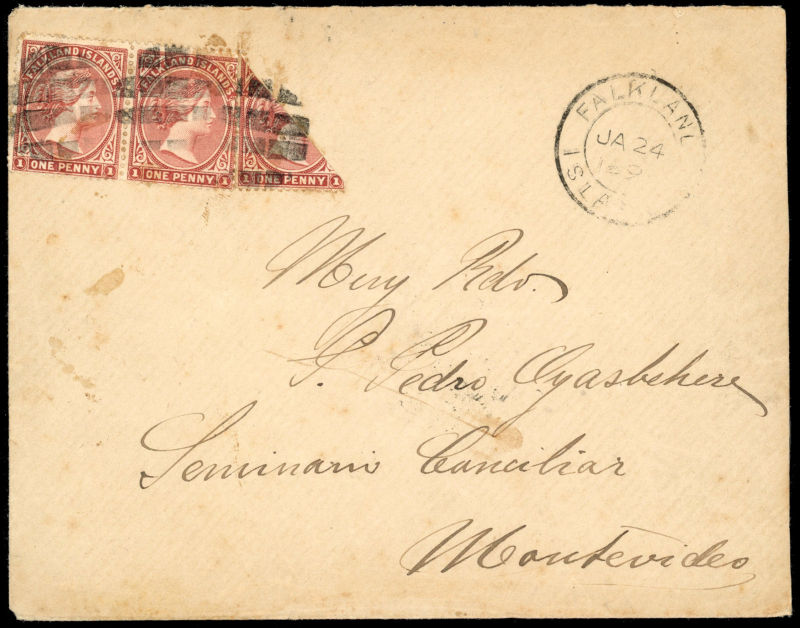 FALKLAND ISLANDS FALKLAND ISLANDS
1 ONE PENNY 1 1 ONE PENNY 1 1 ONE PENNY 1
FALKLAND
JA 24
ISLA
Muy Rdo.
P. Pedro Oyasbehere
Seminario Conciliar
Montevideo